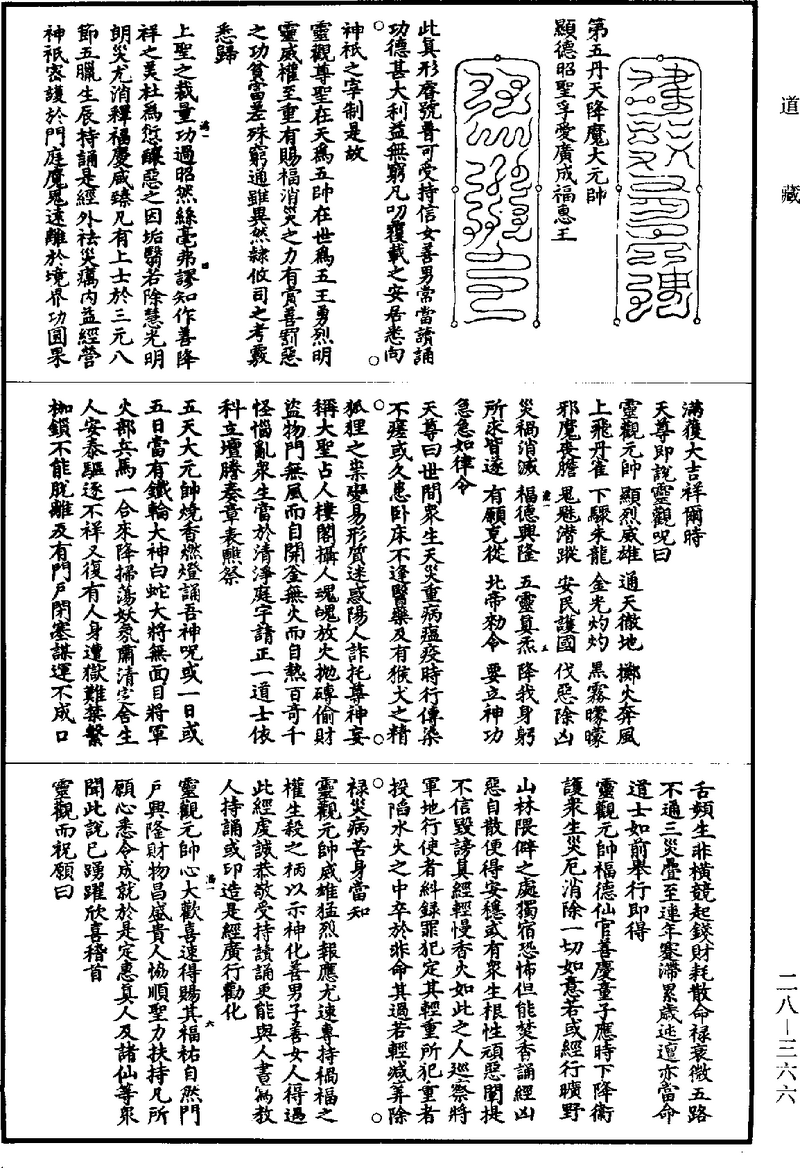 道藏
第五丹天降魔大元帥
顯德昭聖孚愛廣成福惠王
此真形符號普可受持信女善男常當讀誦
功德甚大利益無窮凡叨覆載之安居悉向
神祇之宰制是故
靈觀尊聖在天為五帥在世為五王勇烈明
靈威權至重有賜福消災之力有賞善罰惡
之功貧富差殊窮通雖異然隸攸司之考覈
悉歸
上聖之裁量功過昭然絲毫弗謬知作善降
祥之美杜為愆釀惡之因垢翳若除慧光明
朗災尤消釋福慶咸臻凡有上士於三元八
節五臘生辰持誦是經外祛災癘內益經營
神祇密護於門庭魔鬼遠離於境界功圓果
滿獲大吉祥爾時
天尊即說靈觀呪曰
靈觀元帥 顯烈威雄 通天徹地 擲火奔風
上飛丹雀 下驟朱龍 金光灼灼 黑霧曚曚
邪魔喪膽 鬼魅潛蹤 安民護國 伐惡除凶
災禍消滅 福德興隆 五靈真炁 降我身躬
所求皆遂 有願克從 北帝勑令 要立神功
急急如律令
天尊曰世間眾生天災重病瘟疫時行傳染
不瘥或久患臥床不逢醫藥及有猴犬之精
狐狸之祟變易形質迷惑陽人詐托尊神妄
稱大聖占人樓閣攝人魂魄放火拋磚偷財
盜物門無風而自開釜無火而自熱百奇千
怪惱亂眾生當於清淨庭宇請正一道士依
科立壇騰奏章表醮祭
五天大元帥燒香燃燈誦吾神呪或一日或
五日當有鐵輪大神白蛇大將無面目將軍
火部兵馬一合來降掃蕩妖氛肅清宅舍生
人安泰驅逐不祥又復有人身遭獄難禁繫
枷鎖不能脫離及有門戶閉塞謀運不成口
舌頻生非橫競起錢財耗散命祿衰微五路
不通三災疊至連年蹇滯累歲迍邅亦當命
道士如前舉行即得
靈觀元帥福德仙官善慶童子應時下降衛
護眾生災厄消除一切如意若或經行曠野
山林隈僻之處獨宿恐怖但能焚香誦經凶
惡自散便得安穩或有眾生根性頑惡闡提
不信毀謗真經輕慢香火如此之人巡察將
軍地行使者糾錄罪犯定其輕重所犯重者
投陷水火之中卒於非命其過若輕減筭除
祿災病苦身當知
靈觀元帥威雄猛烈報應尤速專持禍福之
權生殺之柄以示神化善男子善女人得遇
此經虔誠恭敬受持讀誦更能與人書寫教
人持誦或印造是經廣行勸化
靈觀元帥心大歡喜速得賜其福祐自然門
戶興隆財物昌盛貴人協順聖力扶持凡所
願心悉令成就於是定惠真人及諸仙等眾
聞此說已踴躍欣喜稽首
靈觀而祝願曰
二八－三六六